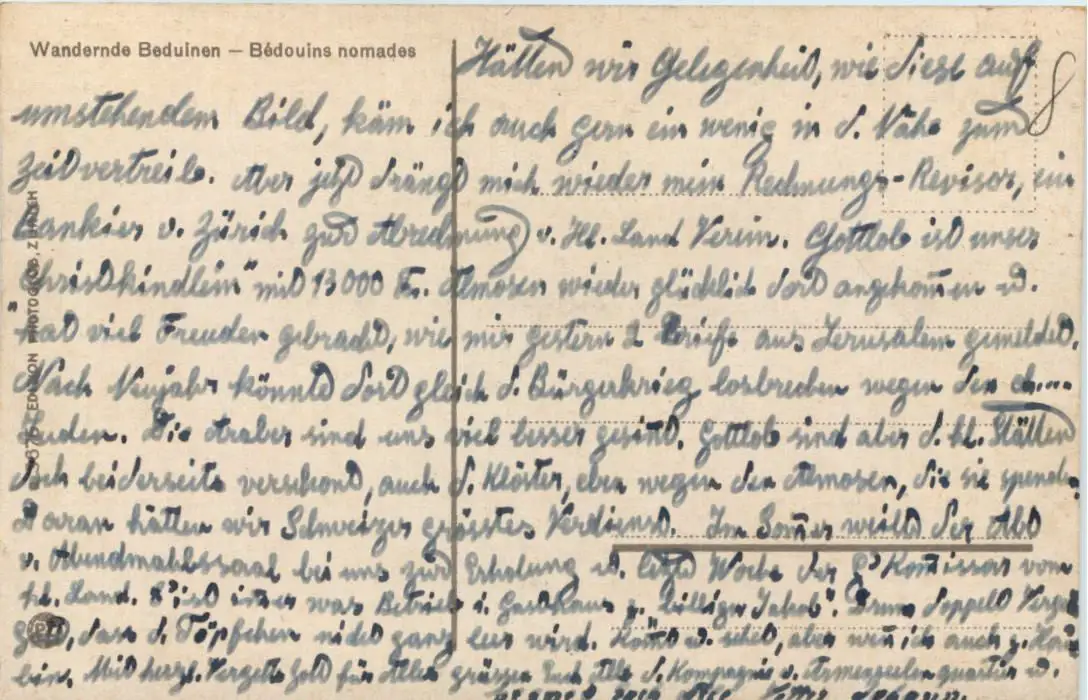 Wandernde Beduinen — Bédouins nomades
Hätten wir Gelegenheit, wie diese auf
umstehendem Bild, käm ich auch gern ein wenig in d. Nähe zum
Zeitvertreib. Aber jetzt drängt mich wieder mein Rechnungs-Revisor, ein
Bankier v. Zürich zur Abrechnung v. Hl. Land Verein. Gottlob ist unser
"Christkindlein" mit 13000 Fr. Almosen wieder glücklich dort angekom̄en u.
hat viel Freuden gebracht, wie mir gestern 2 Briefe aus Jerusalem gemeldet.
Nach Neujahr könnte dort gleich d. Bürgerkrieg losbrechen wegen den ch....
Juden. Die Araber sind uns viel besser gesinnt. Gottlob sind aber d. hl. Stätten
doch beiderseits verschont, auch d. Klöster, eben wegen den Almosen, die sie spenden.
Daran hätten wir Schweizer grösstes Verdienst. Im Som̄er weilte der Abt
v. Abendmahlssaal bei uns zur Erholung u. letzte Woche der Kom̄issar vom
hl. Land. 's ist im̄er was Betrieb i. Gasthaus z. "billigen Jakob". Drum doppelt Vergelts
Gott, dass d. Töpfchen nicht ganz leer wird. Kom̄t u. seht, aber wen̄ ich auch z. Haus
bin. Mit herzl. Vergelts Gott für Alles grüssen Euch Alle d. Kompagnie v. Armenseelenquartier u.